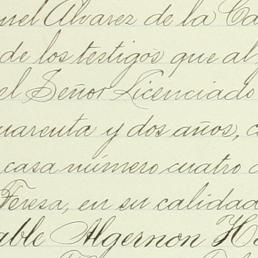 nuel Alvarez de la Ca
de los testigos que al
el Señor Licenciado
uarenta y dos años, c
casa número cuatro d
Teresa, en su calidad
able Algernon H